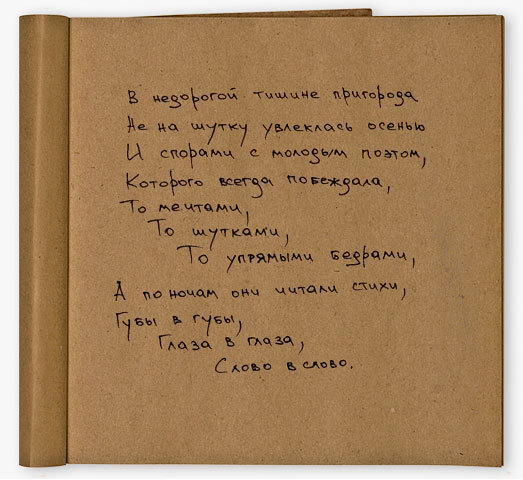 В недорогой тишине пригорода
Не на шутку увлеклась осенью
И спорами с молодым поэтом,
Которого всегда побеждала,
То мечтами,
То шутками,
То упрямыми бедрами,
А по ночам они читали стихи,
Губы в губы,
Глаза в глаза,
Слово в слово.